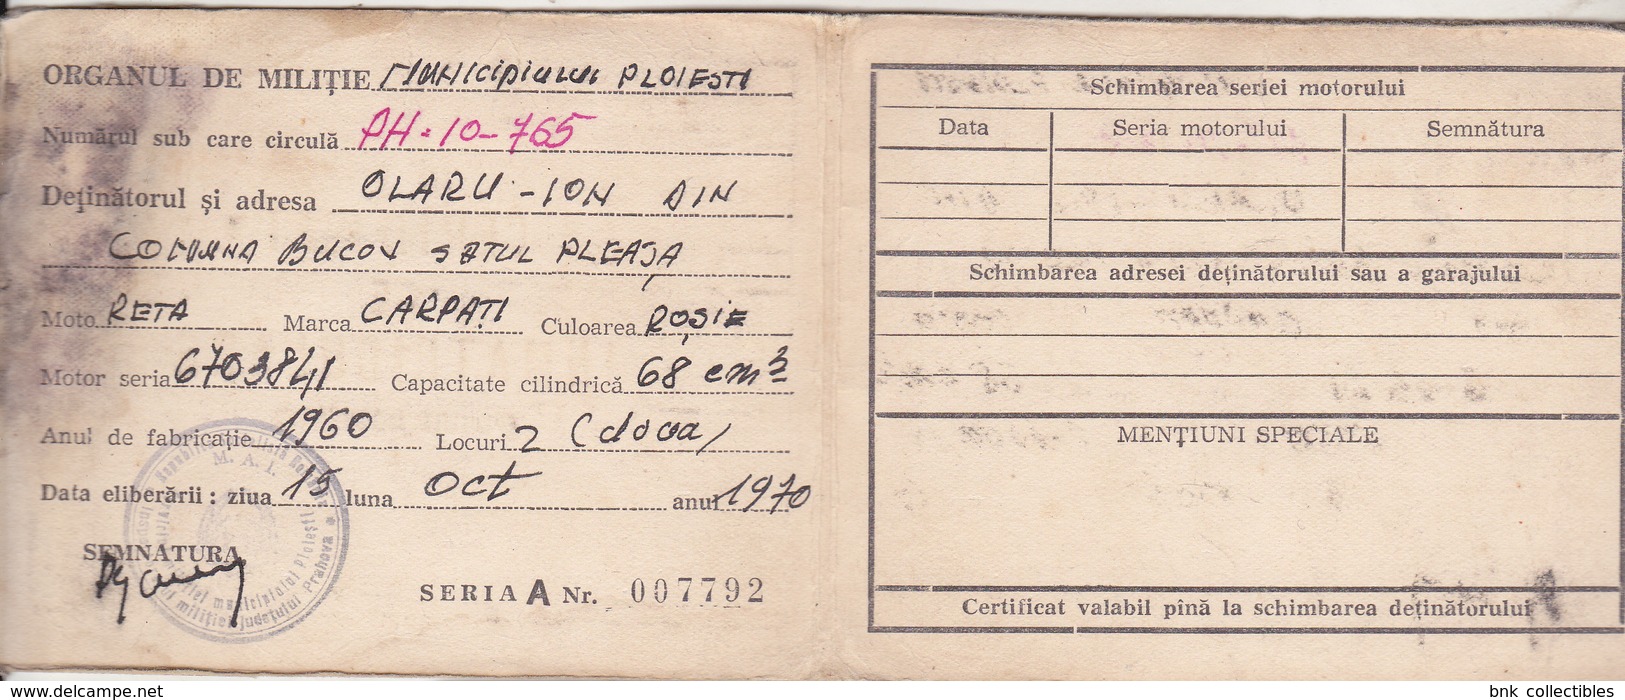 ORGANUL DE MILIȚIE Municipiului PLOIESTI
Numărul sub care circulă PH-10-765
Deținătorul și adresa OLARU - ION DIN
COMUNA BUCOV SATUL PLEAȘA
Moto RETA Marca CARPAȚI Culoarea ROȘIE
Motor seria 6703841 Capacitate cilindrică 68 cm3
Anul de fabricație 1960 Locuri 2 (doua)
Data eliberării: ziua 15 luna Oct anul 1970
SEMNATURA
M. A. I.
municipiului Ploiești
miliției județului Prahova
SERIA A Nr. 007792
Schimbarea seriei motorului
Data Seria motorului Semnătura
Schimbarea adresei deținătorului sau a garajului
MENȚIUNI SPECIALE
Certificat valabil pînă la schimbarea deținătorului
delcampe.net
bnk collectibles